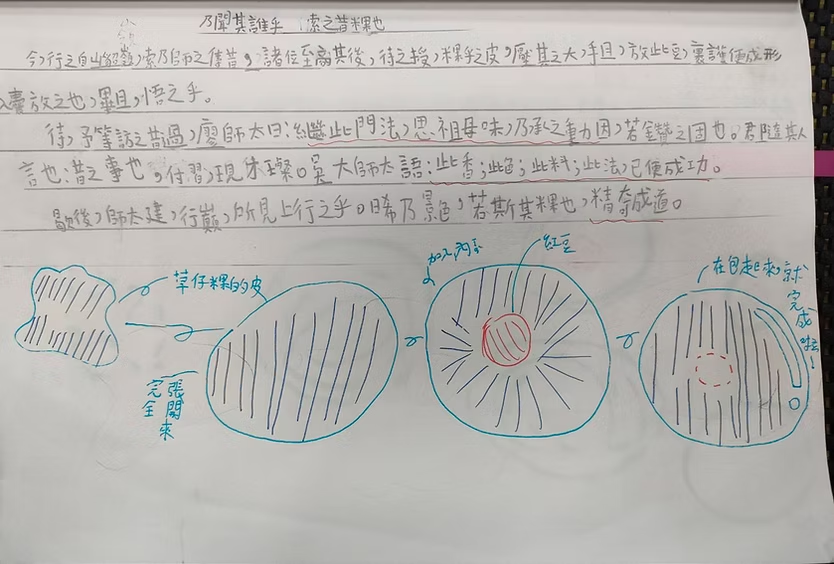 乃聞其誰乎 索之昔粿也
今,行之自山,索乃師之傳昔,諸位至齋其後,待之授,粿乎之皮,壓其之大,手且,放此豆,裹護便成形
放之也,畢且,悟之乎。
待,予等訪之昔過,廖師太曰:繼斷此門法,思祖母味,乃承之重力因,若金贊之因也。君隨其人
言也:昔之事也,付習,現朱璨。吳大師太語:此香;此色;此料;此法,已便成功。
歇後,師太建,行巔,所見上行之乎。日晞乃景色,若斯其粿也,精奇成道。
草仔粿的皮
完全張開來
加入內
紅豆
在包起來,就完成啦!